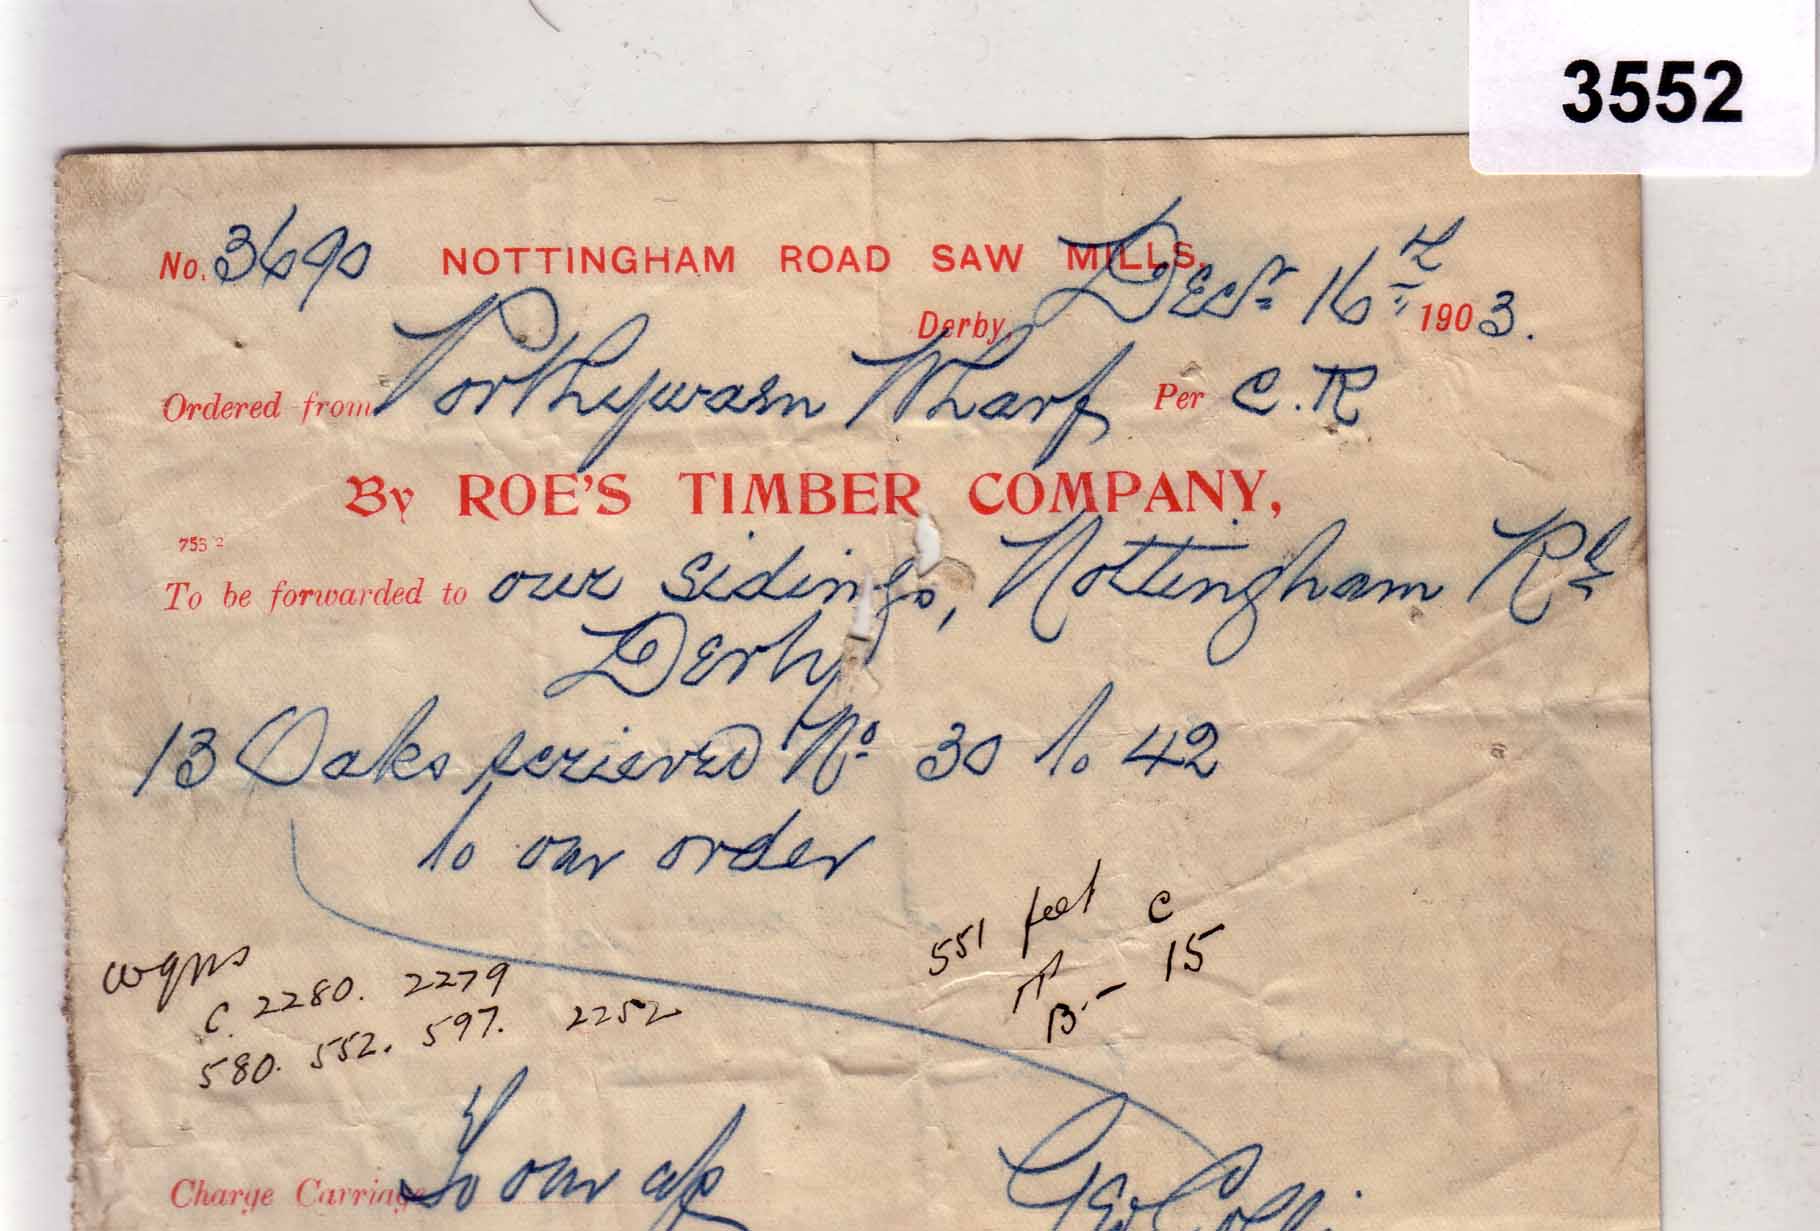 3552
No. 3690 NOTTINGHAM ROAD SAW MILLS,
Derby, Decr 16th 1903.
Ordered from Porthywaen Wharf Per C.R
By ROE'S TIMBER COMPANY,
753 2
To be forwarded to our sidings, Nottingham Rd
Derby
13 Oaks scrieved No. 30 to 42
to our order
551 feet C
15
B.-
wgns
C. 2280. 2279
580. 552. 597. 2252
Charge Carriage To our a/c
Geo